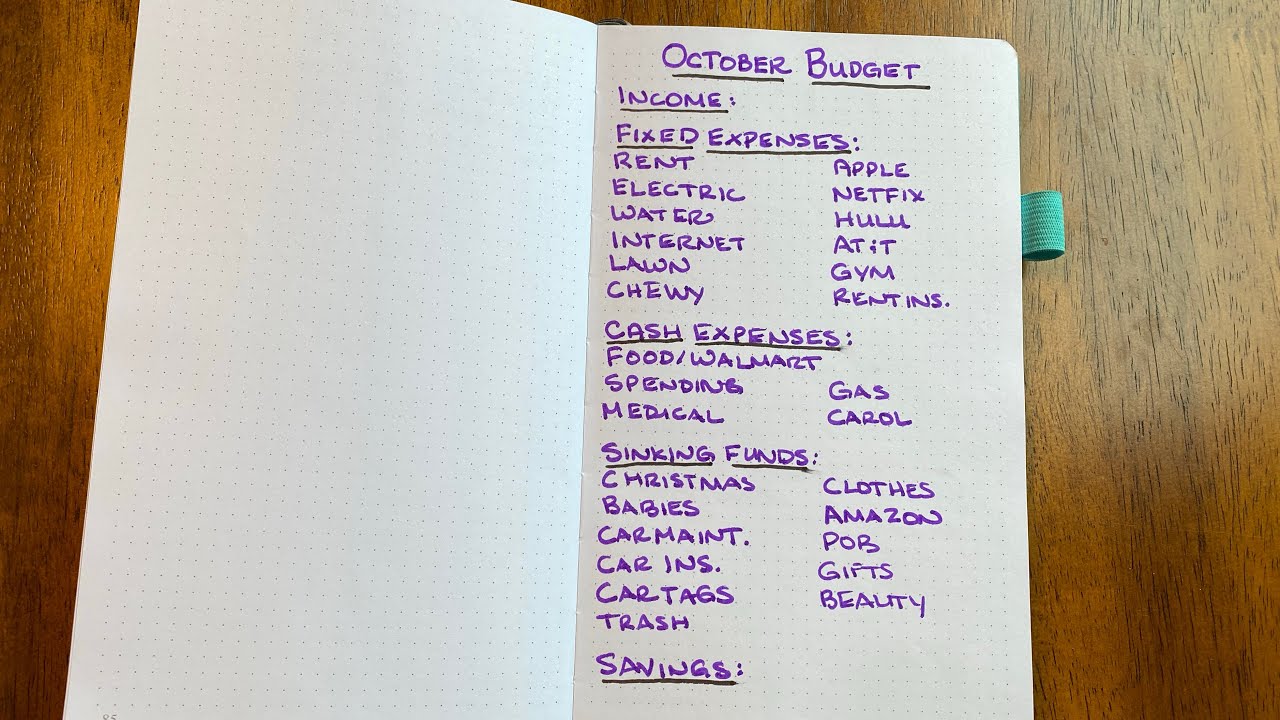 OCTOBER BUDGET
INCOME:
FIXED EXPENSES:
RENT
ELECTRIC
WATER
INTERNET
LAWN
CHEWY
APPLE
NETFIX
HULU
AT&T
GYM
RENT INS.
CASH EXPENSES:
FOOD/WALMART
SPENDING
MEDICAL
GAS
CAROL
SINKING FUNDS:
CHRISTMAS
BABIES
CAR MAINT.
CAR INS.
CAR TAGS
TRASH
CLOTHES
AMAZON
POB
GIFTS
BEAUTY
SAVINGS: